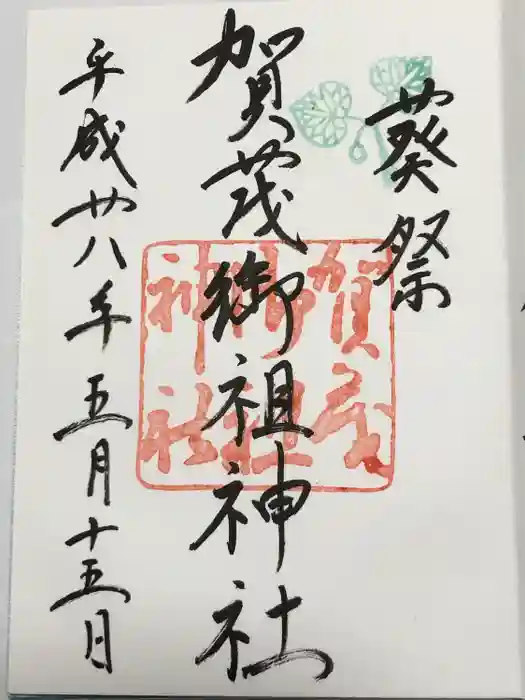 葵祭
賀茂御祖神社
賀茂
御祖
神社
平成廿八年五月十五日